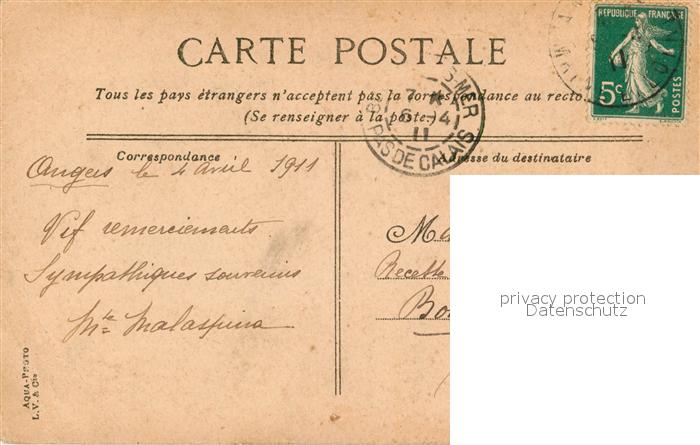 CARTE POSTALE
REPUBLIQUE FRANÇAISE
5c
POSTES
Tous les pays étrangers n'acceptent pas la correspondance au recto
(Se renseigner à la poste.)
MER
7
6 -4
11
PAS DE CALAIS
Correspondance
Adresse du destinataire
Angers le 4 avril 1911
Vif remerciements
Sympathiques souvenirs
Mte Malaspina
M
Recette
Bo
privacy protection
Datenschutz
AQUA-PHOTO
L.V. & Cie